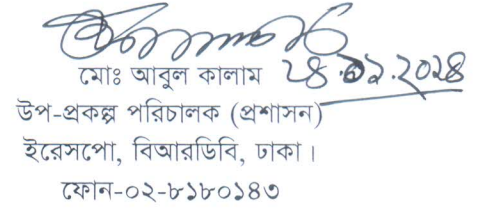 মোঃ আবুল কালাম ২৪.০১.২০২৪
উপ-প্রকল্প পরিচালক (প্রশাসন)
ইরেসপো, বিআরডিবি, ঢাকা।
ফোন-০২-৮১৮০১৪৩